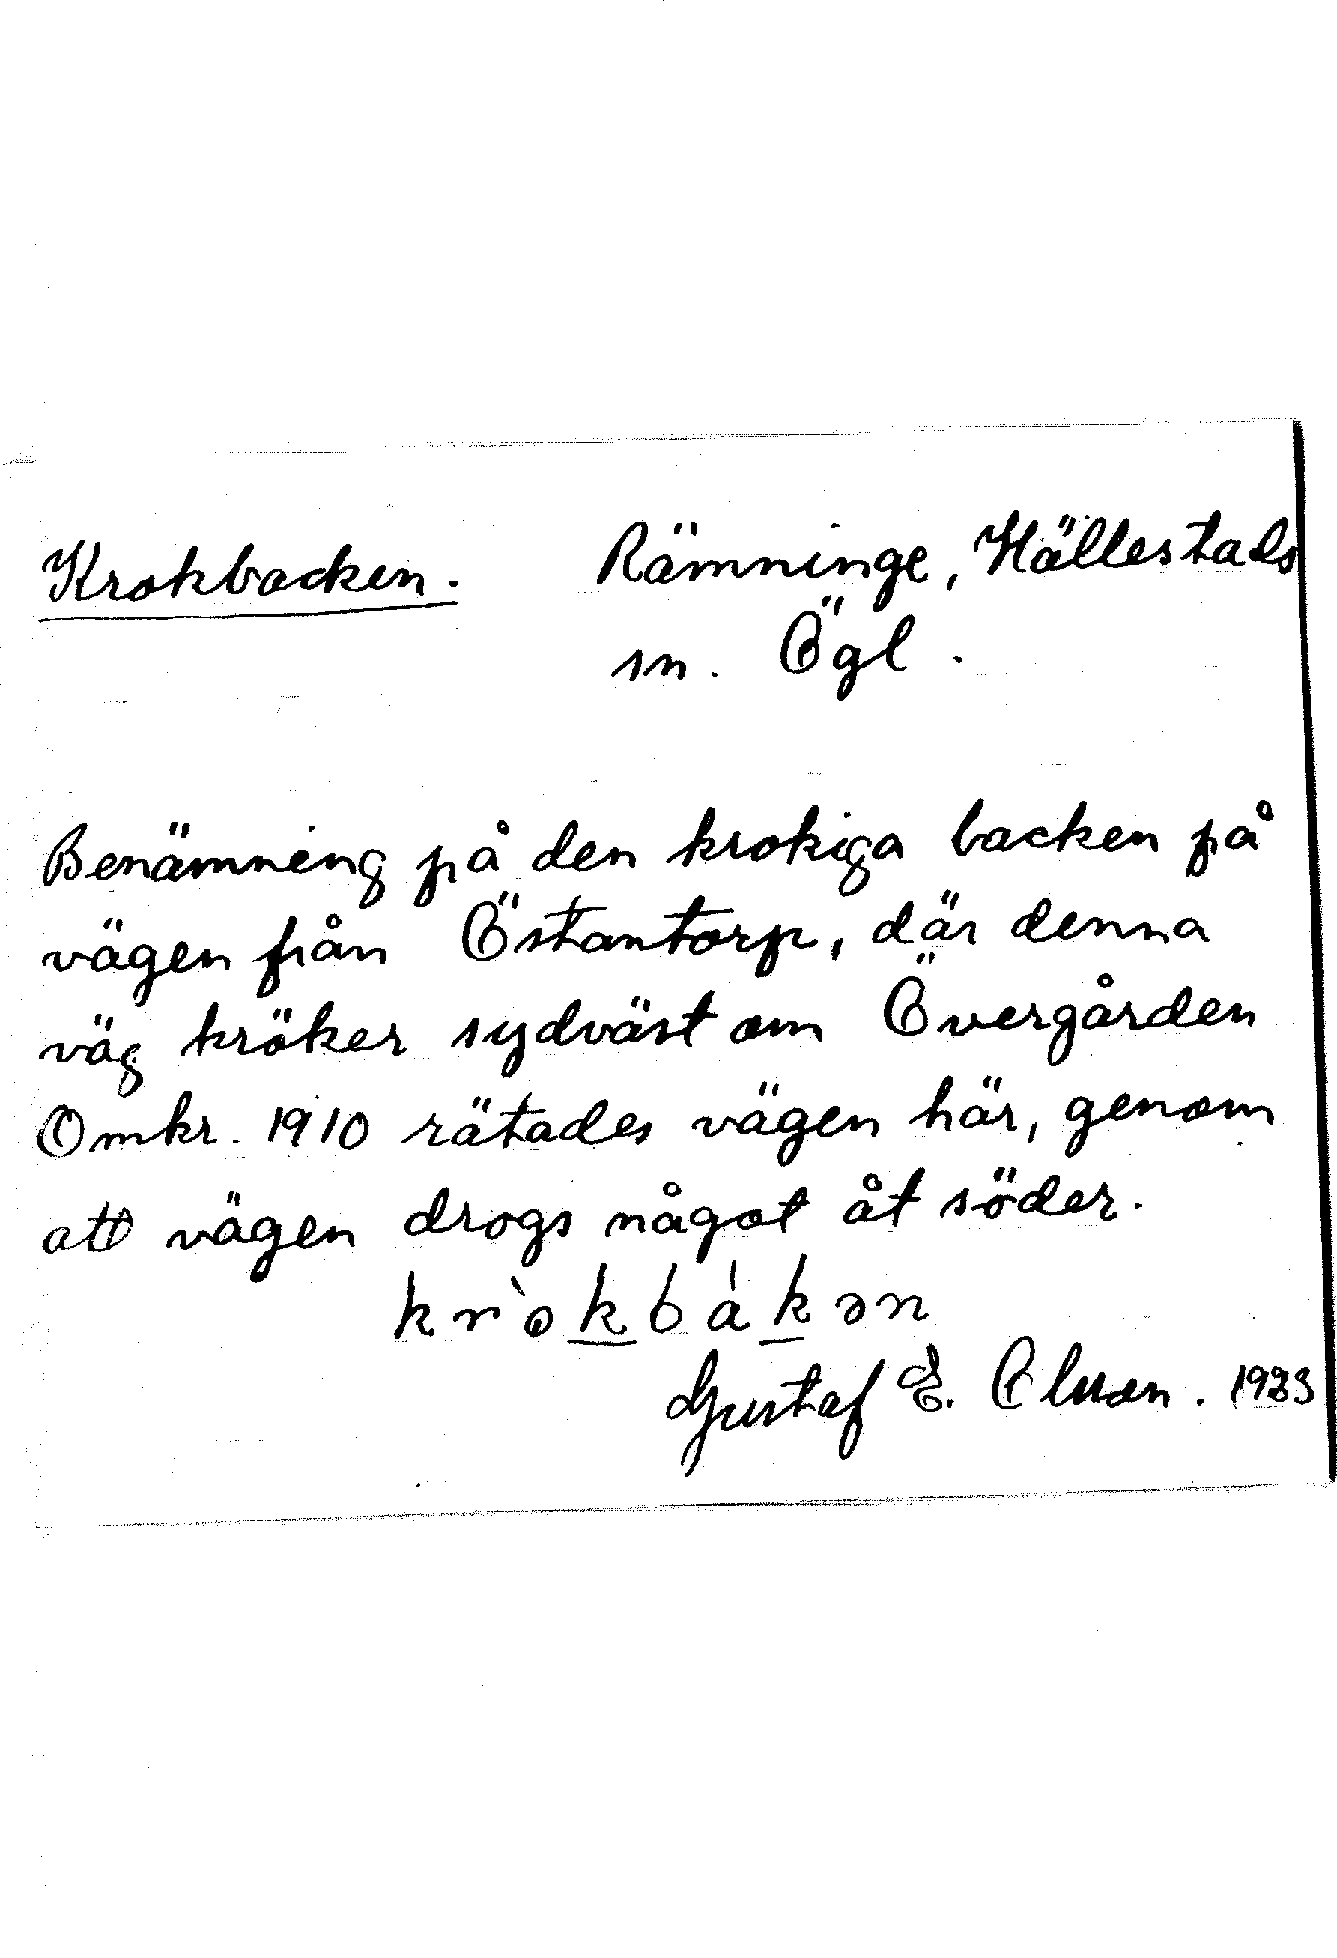 Krokbacken. Rämninge, Hällestads
sn. Ögl.
Benämning på den krokiga backen på
vägen från Östantorp, där denna
väg kröker sydväst om Övergården
Omkr. 1910 rätades vägen här, genom
att vägen drogs något åt söder.
kròkbákən
Gustaf E. Olsson.